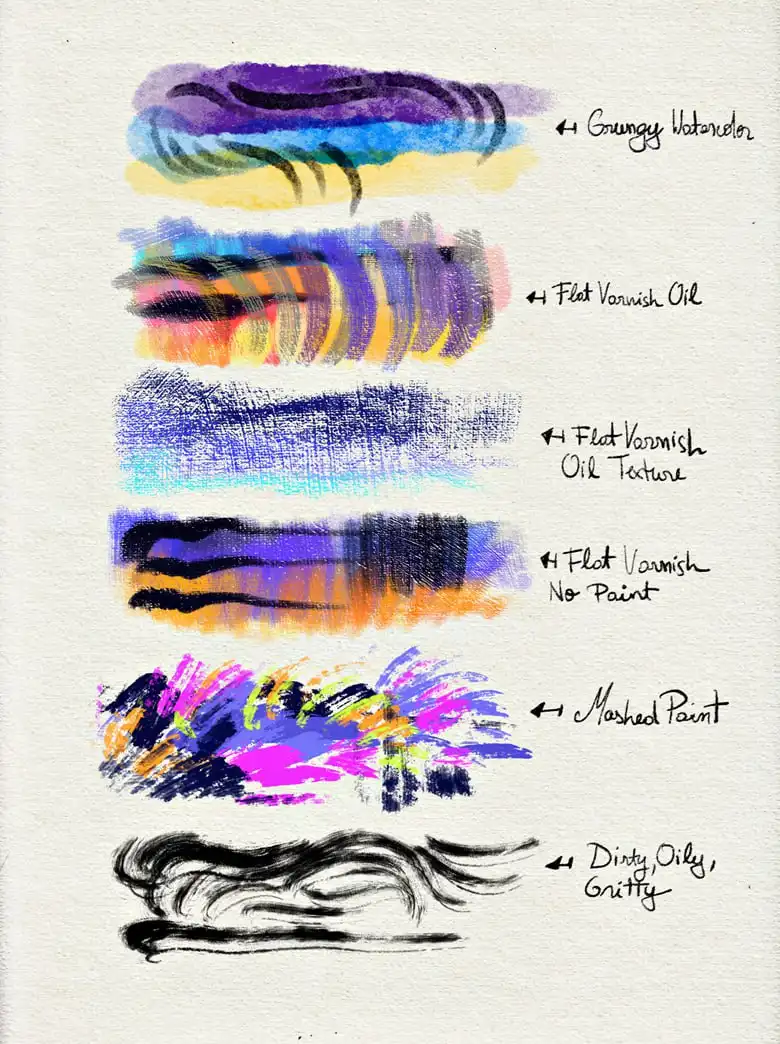 Grungy Watercolor
Flat Varnish Oil
Flat Varnish
Oil Texture
Flat Varnish
No Paint
Mashed Paint
Dirty, Oily,
Gritty